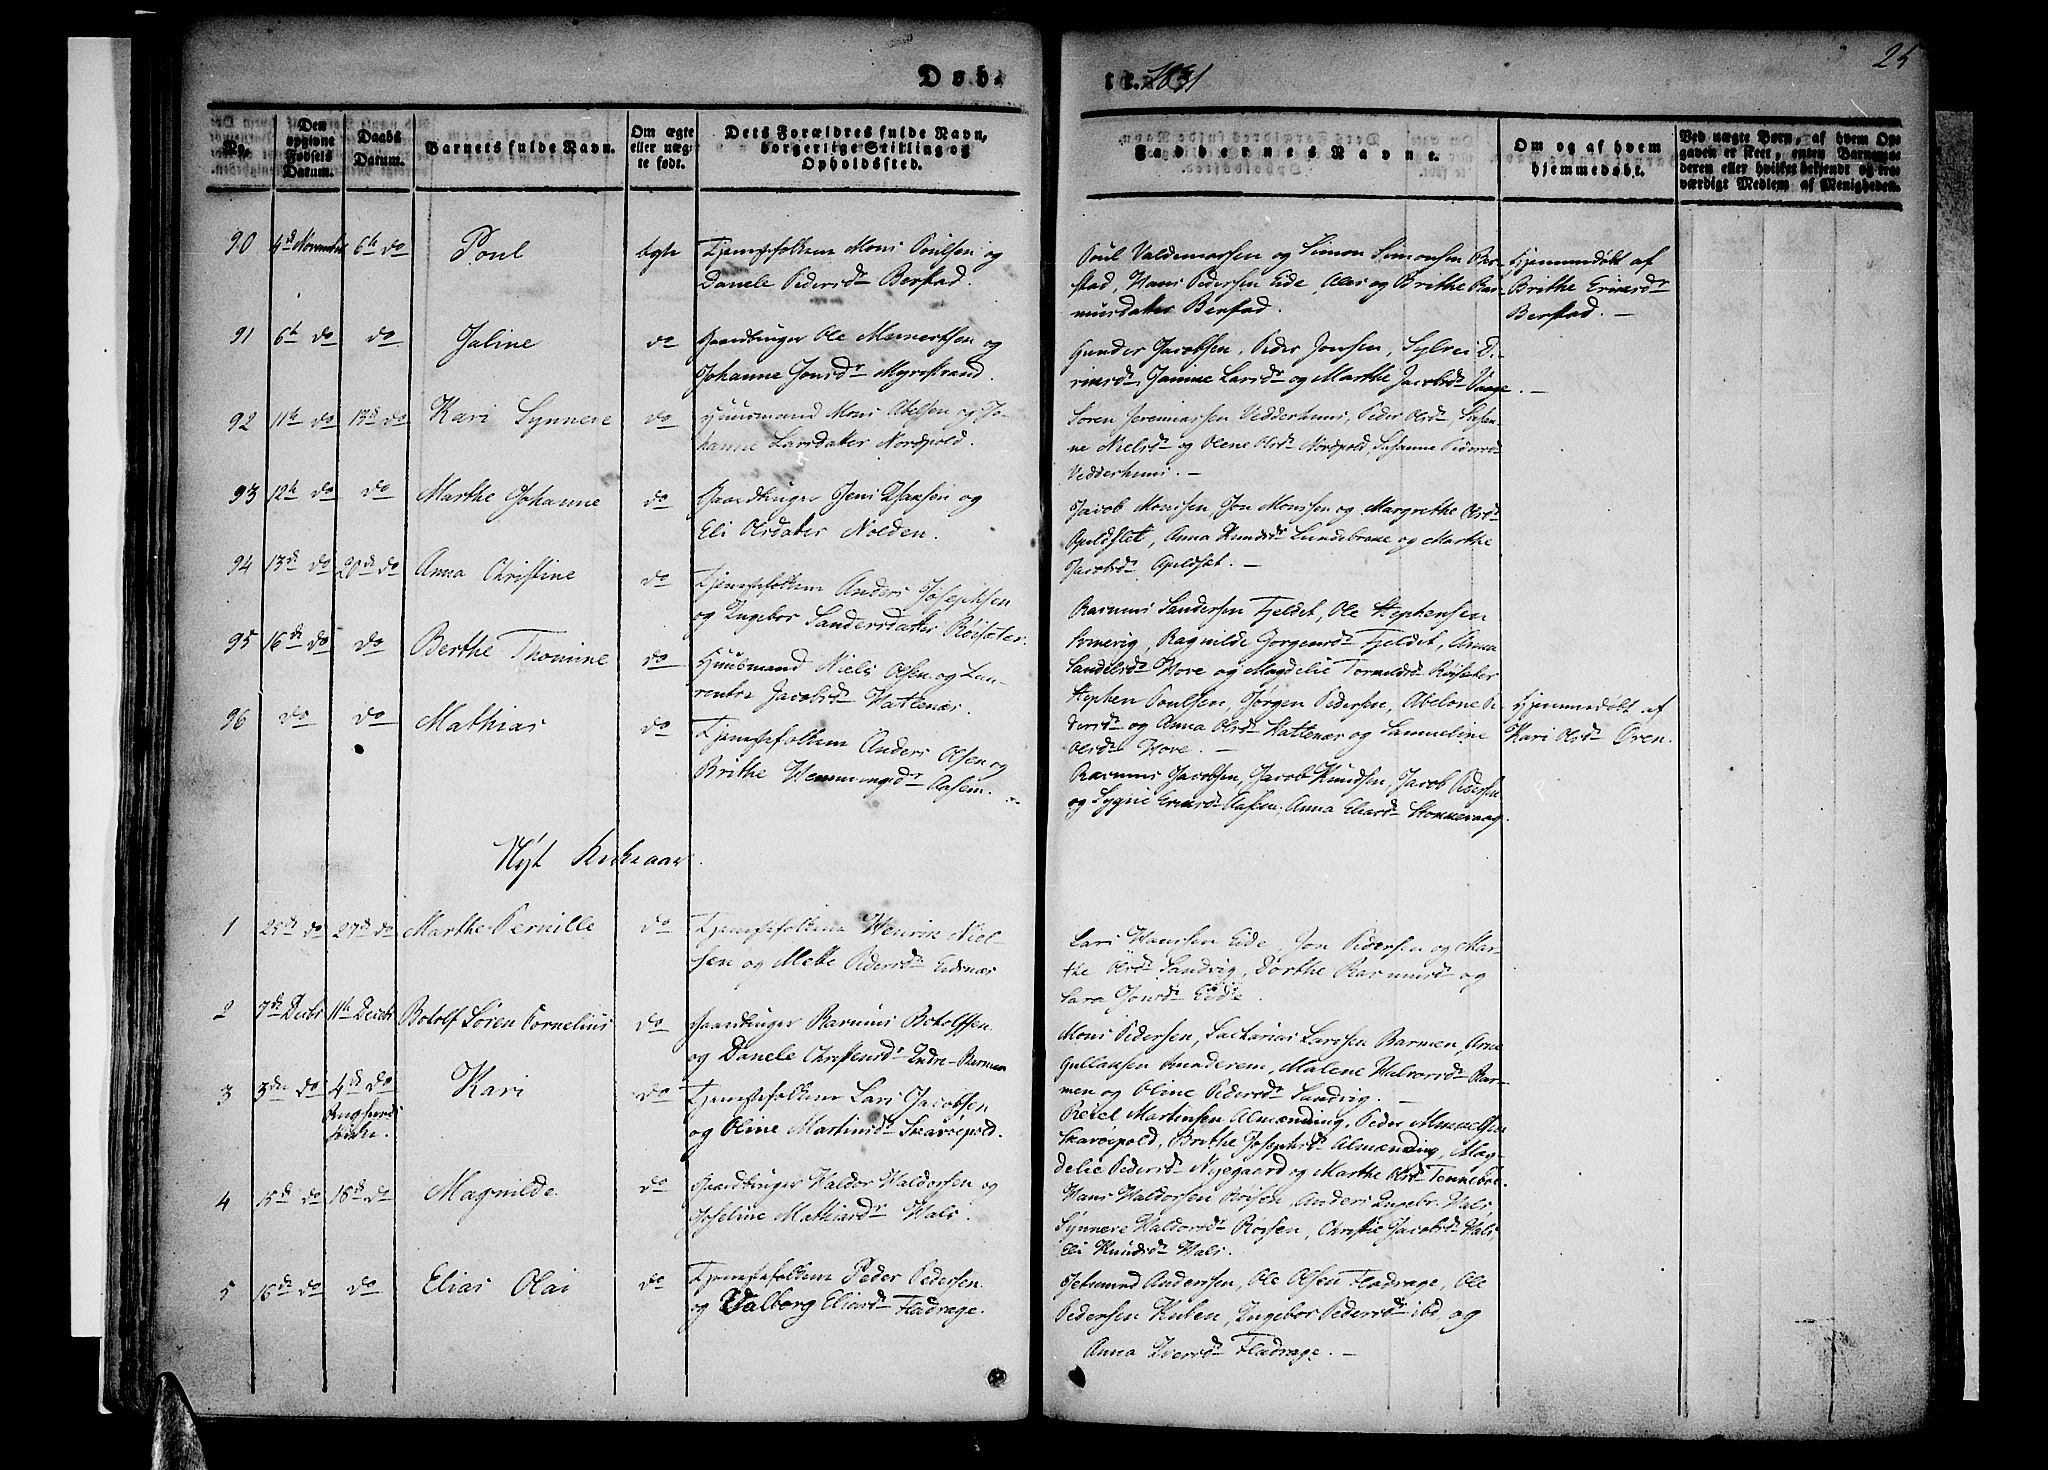 25
Døb-
te. 1831
No.
Den
opgivne
Fødsels
Datum.
Daabs
Datum.
Barnets fulde Navn.
Om ægte
eller uæg-
te født.
Dets Forældres fulde Navn,
borgerlige Stilling og
Opholdssted.
Faddernes Navne.
Om og af hvem
hjemmedøbt.
Ved uægte Børn, af hvem Op-
gaven er skeet, enten Barnemo-
deren eller hvilket bekjendt og tro-
værdigt Medlem af Menigheden.
90 4de November 6te do Poul ægte Tjenestefolkene Mons Poulsen og
Danele Pedersdr Berstad.
Poul Valdemarsen og Simon Simonsen Ber-
stad, Hans Pedersen Eide, Olas og Brithe Ras-
musdatter Berstad.
Hjemmedøbt af
Brithe Ericsdr
Berstad. —
91 6te do do Jaline do Gaardbruger Ole Meinertsen og
Johanne Jonsdr Myrestrand.
Gunder Jacobsen, Peder Jonsen, Sylvei
Janine Larsdr og Marthe Jacobsdr Vaage. —
92 11te do 13de do Kari Synneve do Huusmand Mons Abelsen og Jo-
hanne Larsdatter Nordpold.
Søren Jeremiassen Vedderhuus, Peder Olsdr, Susan-
ne Nielsdr og Olene Olsdr Nordpold, Susanne Pedersdr
Vedderhuus. —
93 12te do do Marthe Johanne do Gaardbruger Jens Isaksen og
Eli Olsdatter Nolden.
Jacob Monssen, Jon Monssen og Margrethe Olsdr
Apuldset, Anna Knudsdr Lundebrexe og Marthe
Jacobsdr Apuldset. —
94 13de do 20de do Anna Christine do Tjenestefolkene Anders Josephsen
og Ingebor Sandersdatter Røisæter.
Rasmus Sandersen Fjeldet, Ole Stephensen
Ragnilde Gorgensdr Fjeldet, Anna
Sandersdr Hove og Magdelie Tormodsdr Røisæter
95 16de do do Berthe Thomine do Huusmand Niels Olsen og Lau-
rentse Jacobsdr Hattenær.
Stephen Poulsen, Jørgen Pedersen, Abelone Pe-
dersdr og Anna Olsdr Hattenær og Samueline
Olsdr Hove. —
96 do do Mathias do Tjenestefolkene Anders Olsen og
Brithe Hemmingsdr Aasem.
Rasmus Jacobsen, Jacob Knudsen, Jacob Pedersen
og Sygne Ericsdr Aasem, Anna Eliasdr Stokkevaag.
Hjemmedøbt af
Kari Olsdr Øren.
Nyt Kirkeaar.
1 25de do 27de do Marthe Pernille do Tjenestefolkene Henrik Niel-
sen og Mette Pedersdr Eidsnær
Lars Hanssen Eide, Jon Pedersen og Mar-
the Olsdr Sandvig, Dorthe Rasmusdr og
Sara Jonsdr Eide.
2 7de Decbr 11te Decbr Botolf Søren Cornelius do Gaardbruger Rasmus Botolfsen
og Danele Christensdr Indre-Barmen
Mons Pedersen, Zacharias Larssen Barmen, Arne
Gullaksen Runderem, Malene Halvorsdr Bar-
men og Oline Pedersdr Sandvig. —
3 3die do 4de do
Kari do Tjenestefolkene Lars Jacobsen
og Oline Martinsdr Skavøepold.
Peter Martinsen Almænding, Peder
Skavøepold, Brithe Josephsdr Almænding, Mag-
delie Pedersdr Nyegaard og Marthe Olsdr Tennebøe.
4 15de do 18de do Magnilde do Gaardbruger Haldor Haldorsen og
Joseline Mathiasdr Hals.
Hans Haldorsen Røisen, Anders Ingebr. Hals
Synneve Haldorsdr Roisen, Christie Jacobsdr Hals
Eli Knudsdr Hals.
5 16de do do Elias Olai do Tjenestefolkene Peder Pedersen
og Valborg Eliasdr Fladrage.
Jetmund Anderssen, Ole Olsen Fladrage, Ole
Pedersen Hulen, Ingebor Pedersdr ibd, og
Anna Iversdr Fladrage. —